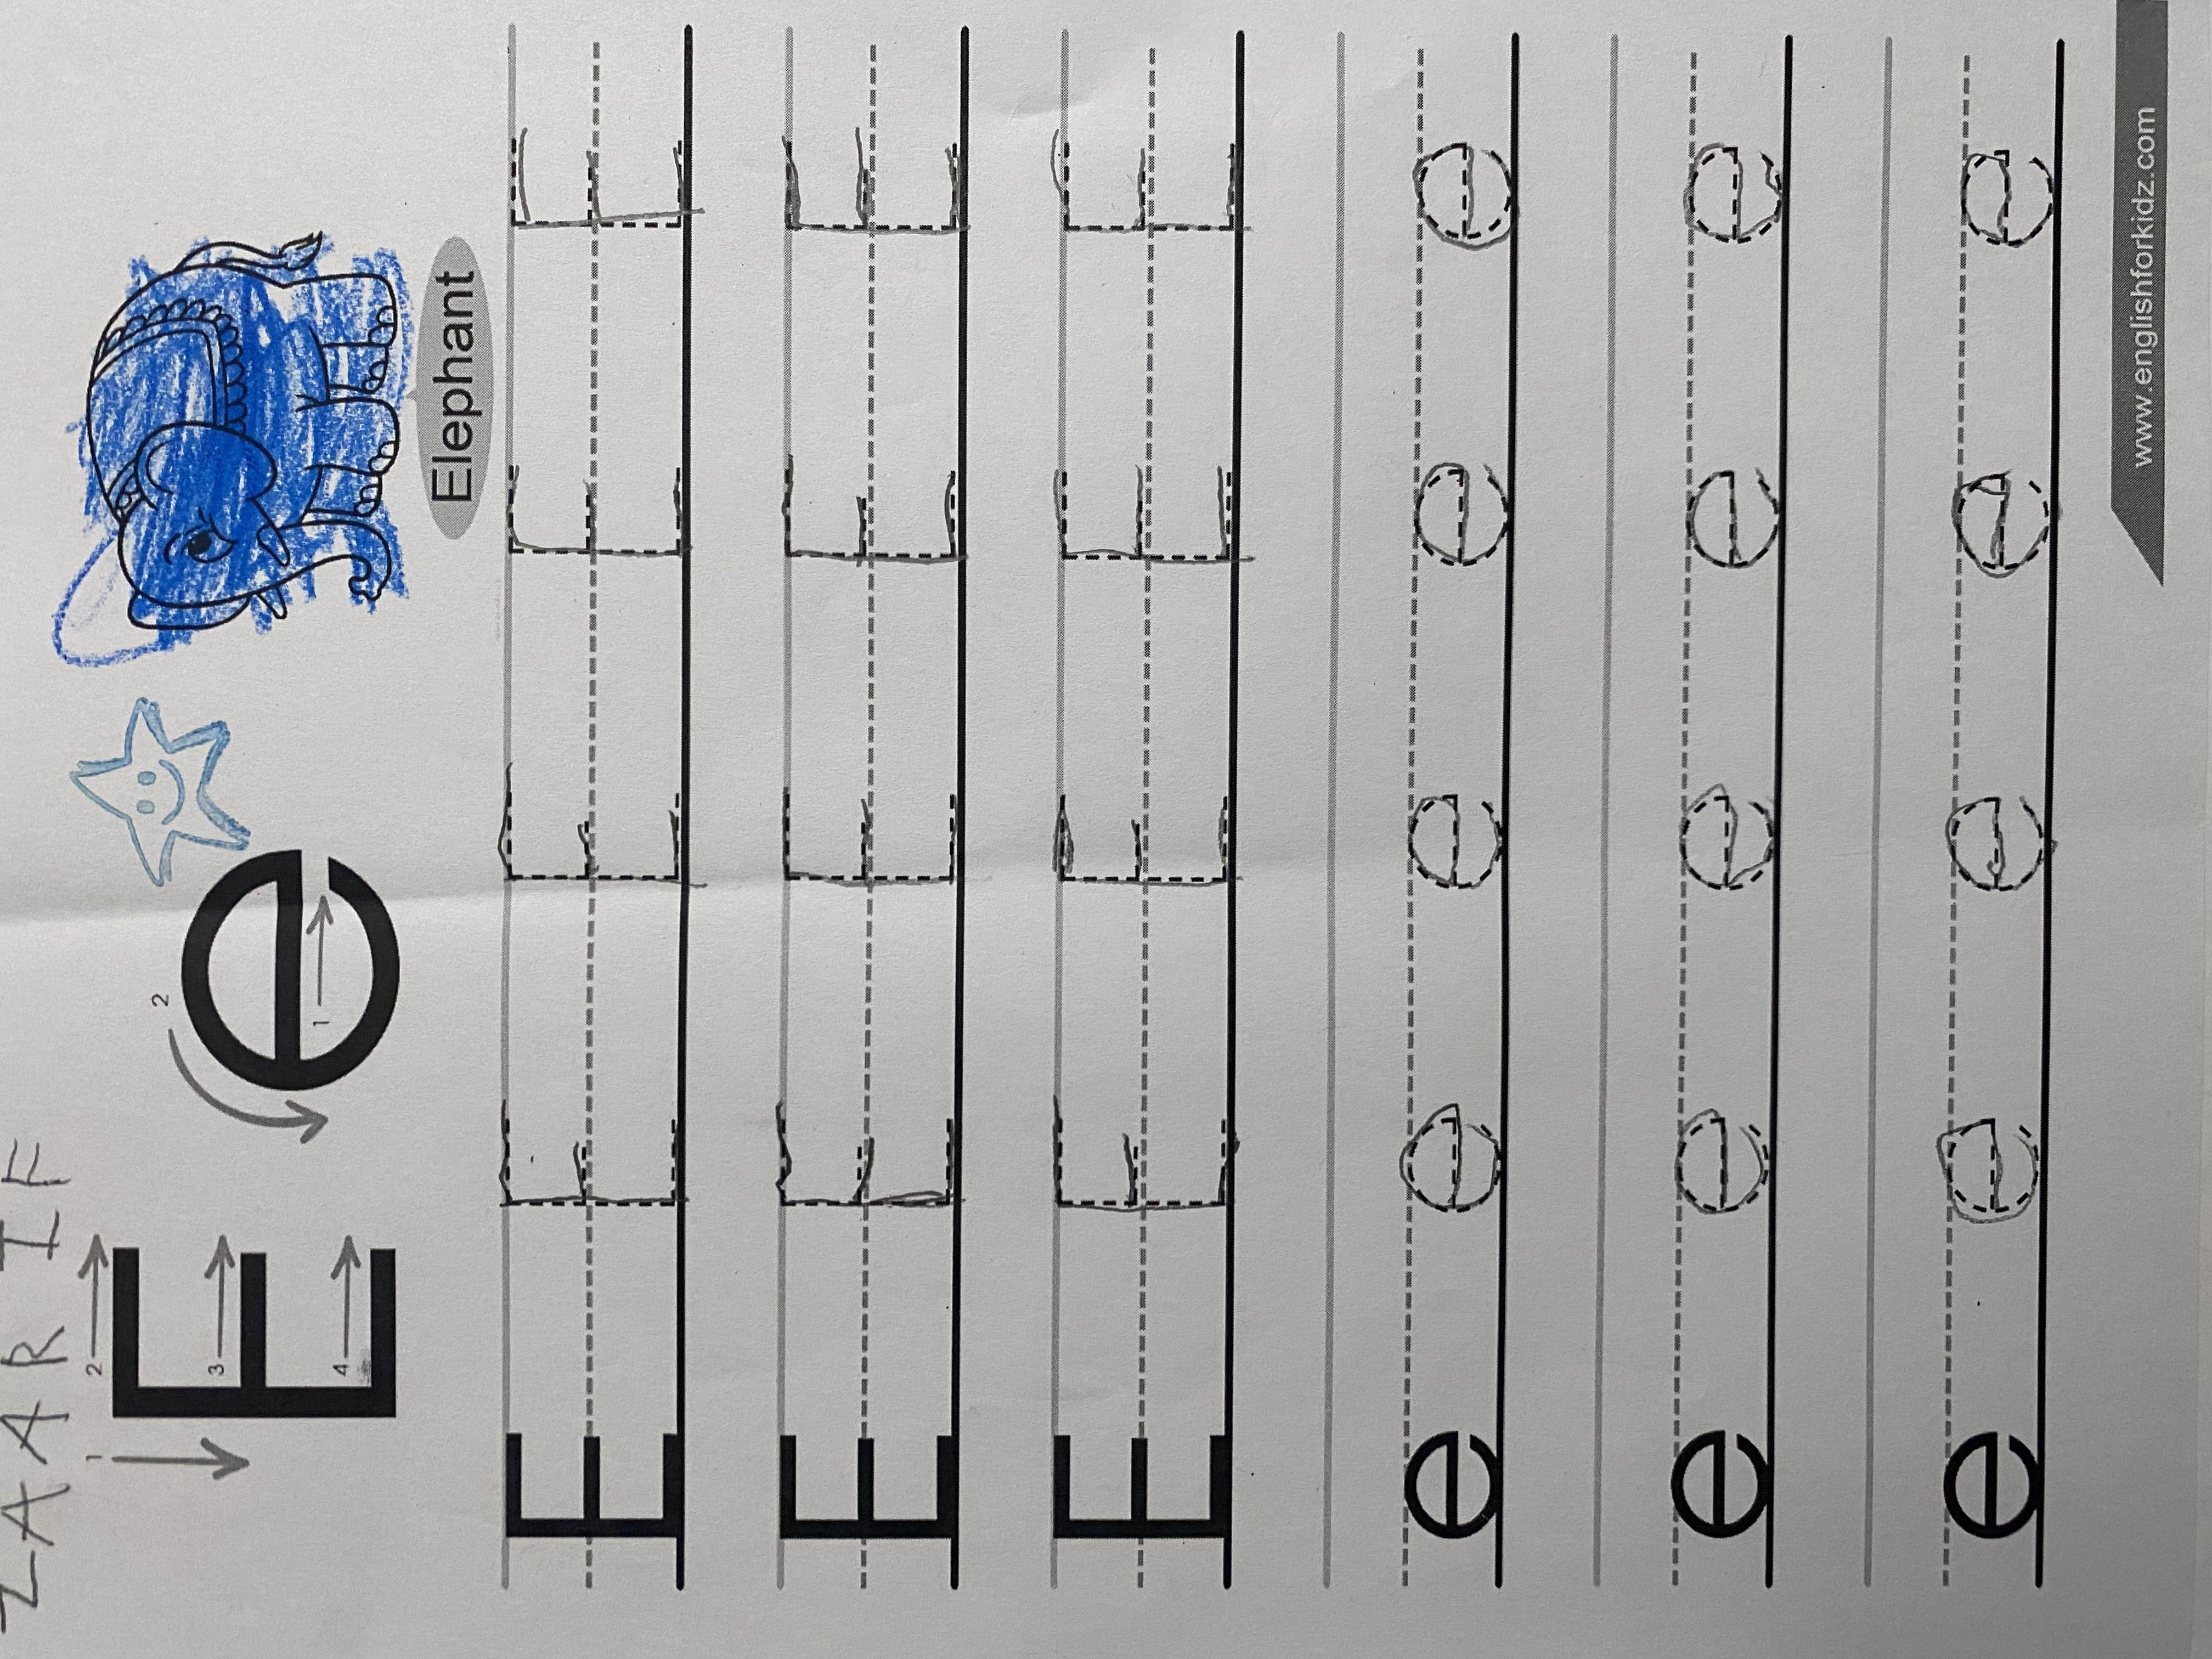 ZAARIF
1 2
E e
2
3
1
4
Elephant
E E E E E
E E E E E
E E E E E
e e e e e
e e e e e
e e e e e
www.englishforkidz.com